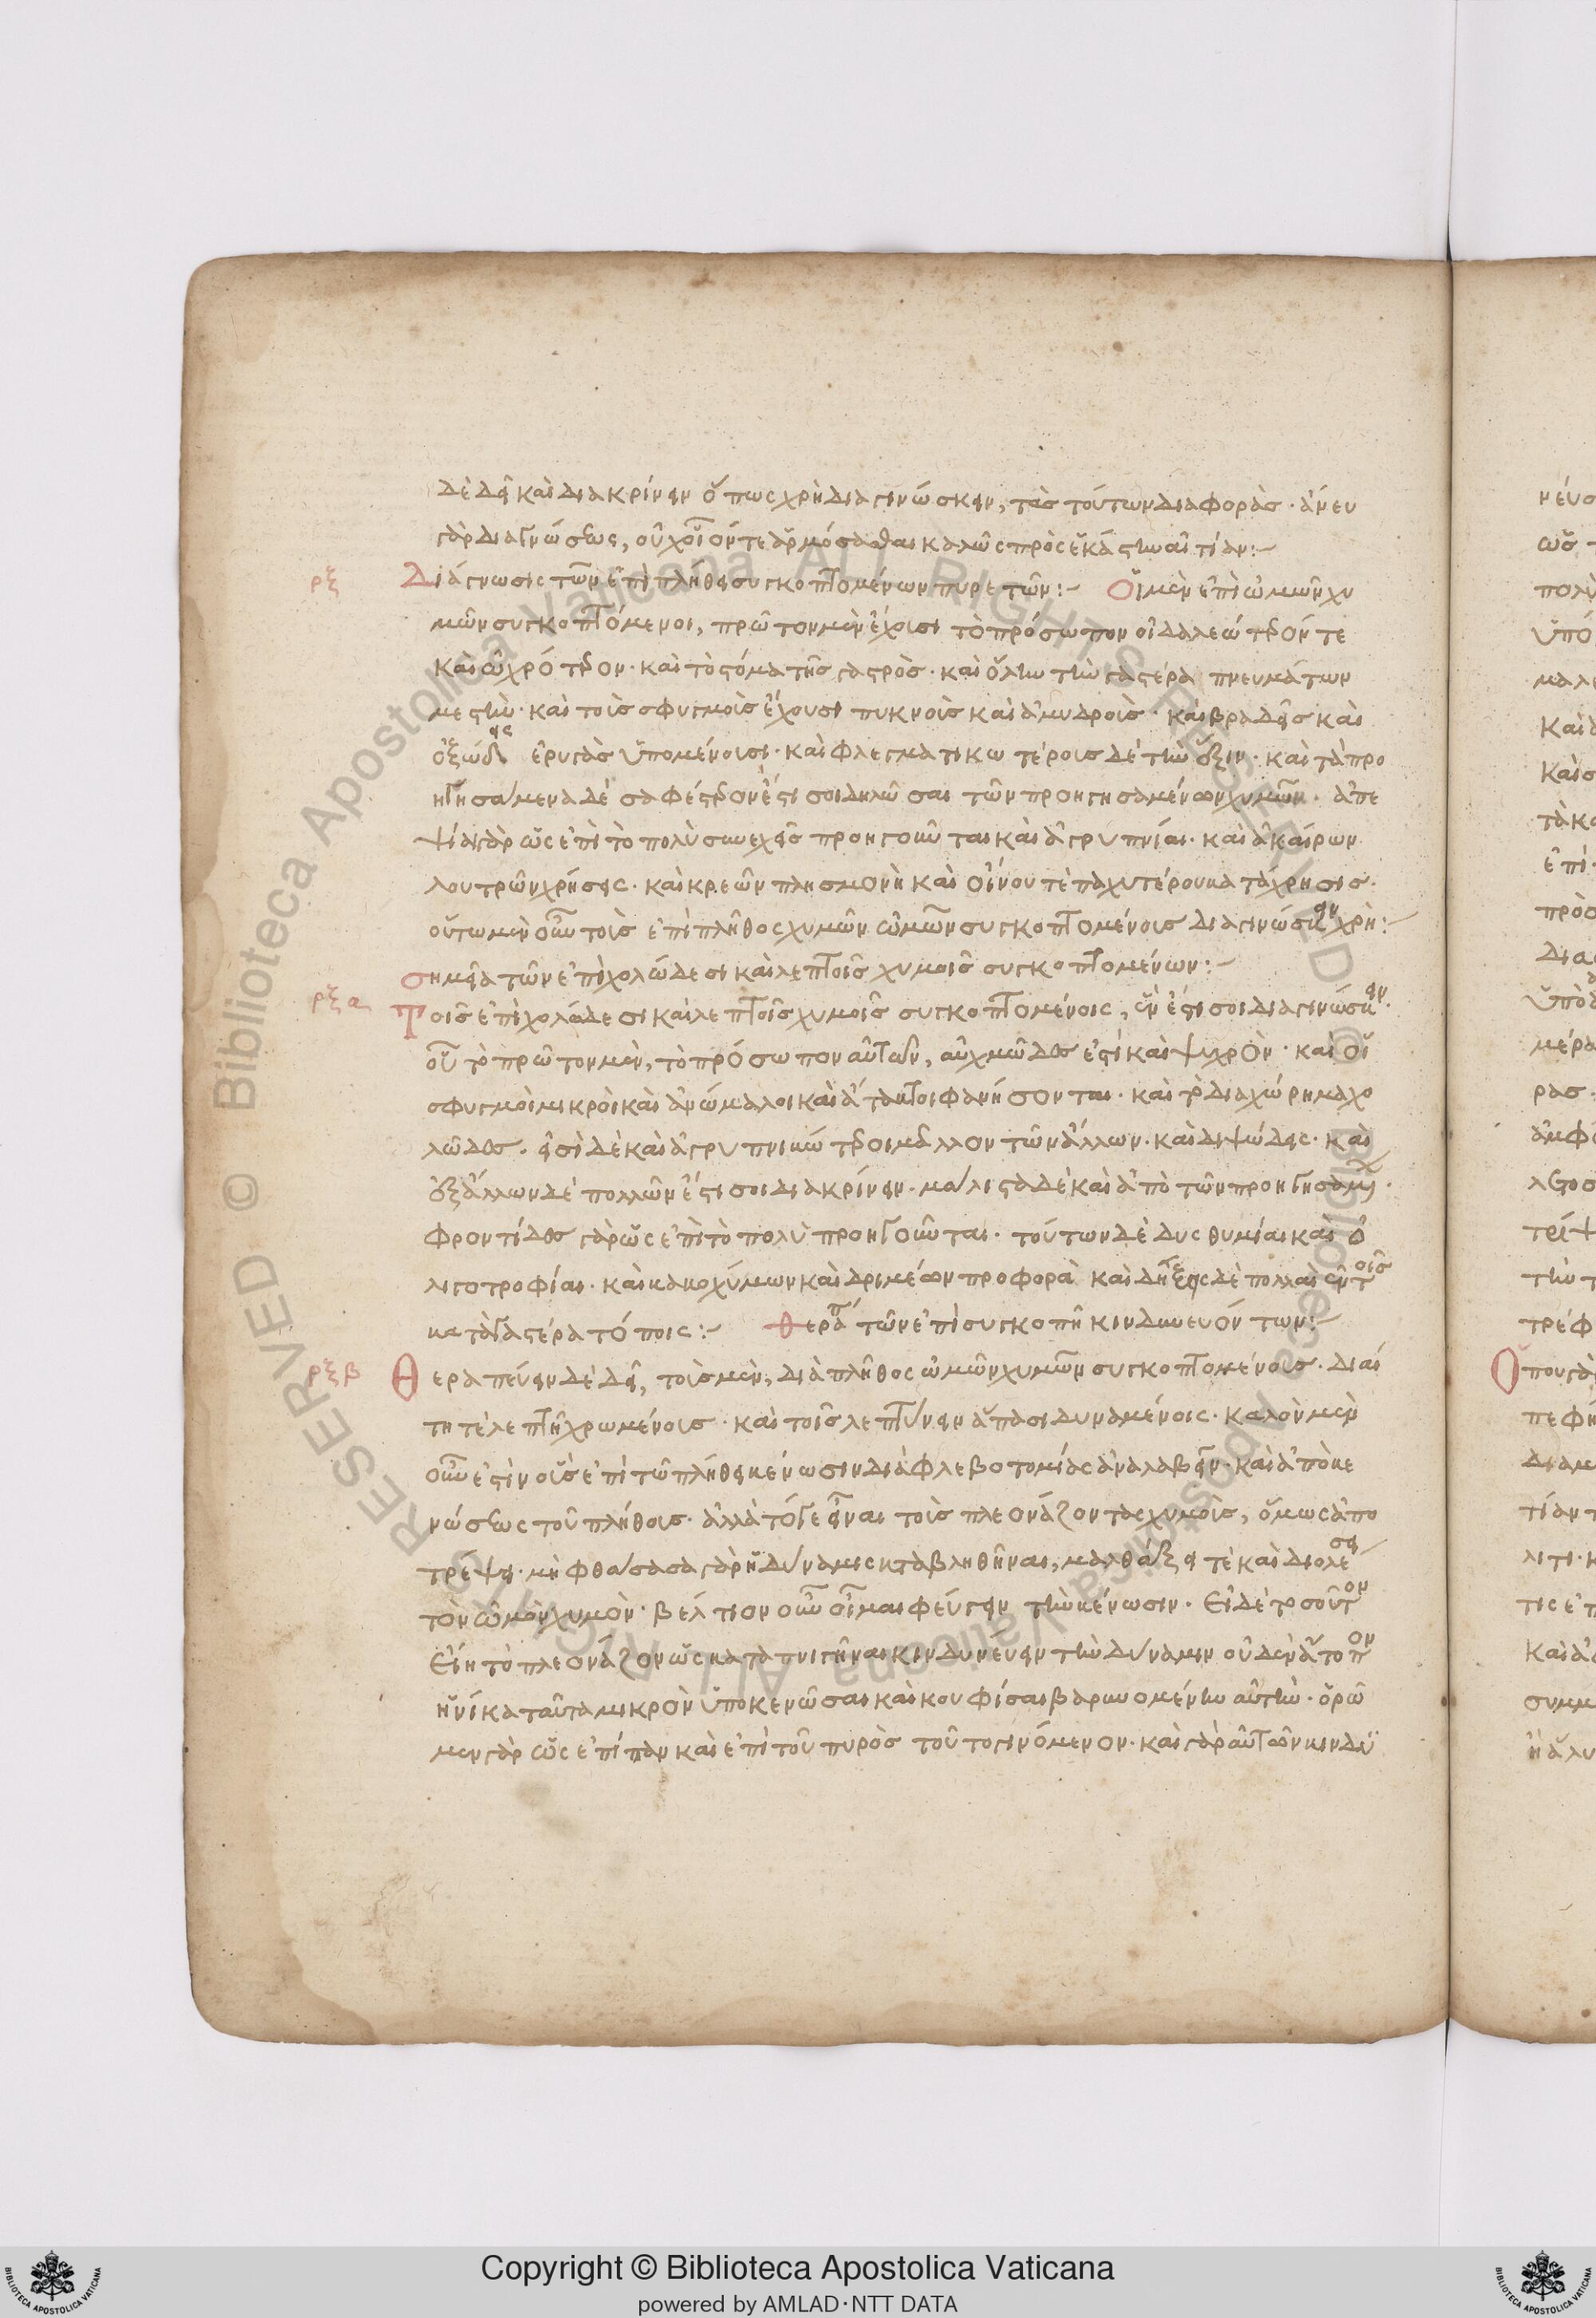 δὲ δεῖ καὶ διακρίνειν ὅπως χρὴ διαγινώσκειν, τὰς τούτων διαφορὰς · ἄνευ
γὰρ διαγνώσεως, οὐχ οἷόν τε ἁρμόσασθαι καλῶς πρὸς ἑκάστην αἰτίαν:~
ρξ Διάγνωσις τῶν ἐπὶ πλήθει συγκοπτομένων πυρετῶν:~ Οἱ μὲν ἐπὶ ὠμῶν χυ
μῶν συγκοπτόμενοι, πρῶτον μὲν ἔχουσι τὸ πρόσωπον οἰδαλεώτερόν τε
καὶ ὠχρότερον · καὶ τὸ στόμα τῆς γαστρὸς · καὶ ὅλην τὴν γαστέρα πνευμάτων
μεστὴν · καὶ τοὺς σφυγμοὺς ἔχουσι πυκνοὺς καὶ ἀμυδροὺς · καὶ βραδεῖς καὶ
ὀξώδεις ἐρυγὰς ὑπομένουσι · καὶ φλεγματικωτέρους δὲ τὴν ἕξιν · καὶ τὰ προ
ηγησάμενα δὲ σαφέστερον ἔστι σοι δηλῶσαι τῶν προηγησαμένων χυμῶν · ἀπε
ψίαι γὰρ ὡς ἐπὶ τὸ πολὺ συνεχεῖς προηγοῦνται καὶ ἀγρυπνίαι · καὶ ἀκαίρων
λουτρῶν χρήσεις · καὶ κρεῶν πλησμονὴ καὶ οἴνου τὲ παχυτέρου κατάχρησις ·
οὕτω μὲν οὖν τοὺς ἐπὶ πλῆθος χυμῶν ὠμῶν συγκοπτομένους διαγινώσκειν χρὴ:~
σημεῖα τῶν ἐπὶ χολώδεσι καὶ λεπτοῖς χυμοῖς συγκοπτομένων:~
ρξα Τοῖς ἐπὶ χολώδεσι καὶ λεπτοῖς χυμοῖς συγκοπτομένοις, ἔνεστί σοι διαγινώσκειν ·
οὕτω πρῶτον μὲν, τὸ πρόσωπον αὐτῶν, αὐχμῶδες ἐστὶ καὶ ψυχρὸν · καὶ οἱ
σφυγμοὶ μικροὶ καὶ ἀνώμαλοι καὶ ἄτακτοι φανήσονται · καὶ τὸ διαχώρημα χο
λῶδες · εἰσὶ δὲ καὶ ἀγρυπνικώτεροι μᾶλλον τῶν ἄλλων · καὶ διψώδεις · καὶ
ἐξ ἄλλων δὲ πολλῶν ἔστι σοι διακρίνειν · μάλιστα δὲ καὶ ἀπὸ τῶν προηγησαμένων ·
φροντίδες γὰρ ὡς ἐπὶ τὸ πολὺ προηγοῦνται · τούτων δὲ δυσθυμίαι καὶ ὀ
λιγοτροφίαι · καὶ κακοχύμων καὶ δριμέων προφορὰ καὶ δήξεις δὲ πολλαὶ ἐν τοῖς
κατὰ γαστέρα τόποις:~ θεραπεία τῶν ἐπὶ συγκοπῇ κινδυνευόντων:~
ρξβ Θεραπεύειν δὲ δεῖ, τοὺς μὲν, διὰ πλῆθος ὠμῶν χυμῶν συγκοπτομένους · διαί
τῃ τὲ λεπτῇ χρωμένους · καὶ τοῖς λεπτύνειν ἅπασι δυναμένοις · καλὸν μὲν
οὖν ἐστὶν οὓς ἐπὶ τῷ πλήθει κένωσιν διὰ φλεβοτομίας ἀναλαβεῖν · καὶ ἀπὸ κε
νώσεως τοῦ πλήθους · ἀλλὰ τό γε εἶναι τοὺς πλεονάζοντας χυμοὺς, ὅμως ἀπο
τρέψει · μὴ φθάσασα γὰρ ἡ δύναμις καταβληθῆναι, μαλθάξει τὲ καὶ διολέσει
τὸν ὠμὸν χυμὸν · βέλτιον οὖν οἶμαι φεύγειν τὴν κένωσιν · Εἰ δὲ τοσοῦτον
Εἴη τὸ πλεονάζον ὡς καταπνιγῆναι κινδυνεύειν τὴν δύναμιν οὐδὲν ἄτοπον
ἡνίκα ταῦτα μικρὸν ὑποκενῶσαι καὶ κουφίσαι βαρυνομένην αὐτὴν · ὁρῶ
μεν γὰρ ὡς ἐπίπαν καὶ ἐπὶ τοῦ πυρὸς τοῦτο γινόμενον · καὶ γὰρ αὐτῶν κινδυ
Copyright © Biblioteca Apostolica Vaticana
powered by AMLAD·NTT DATA